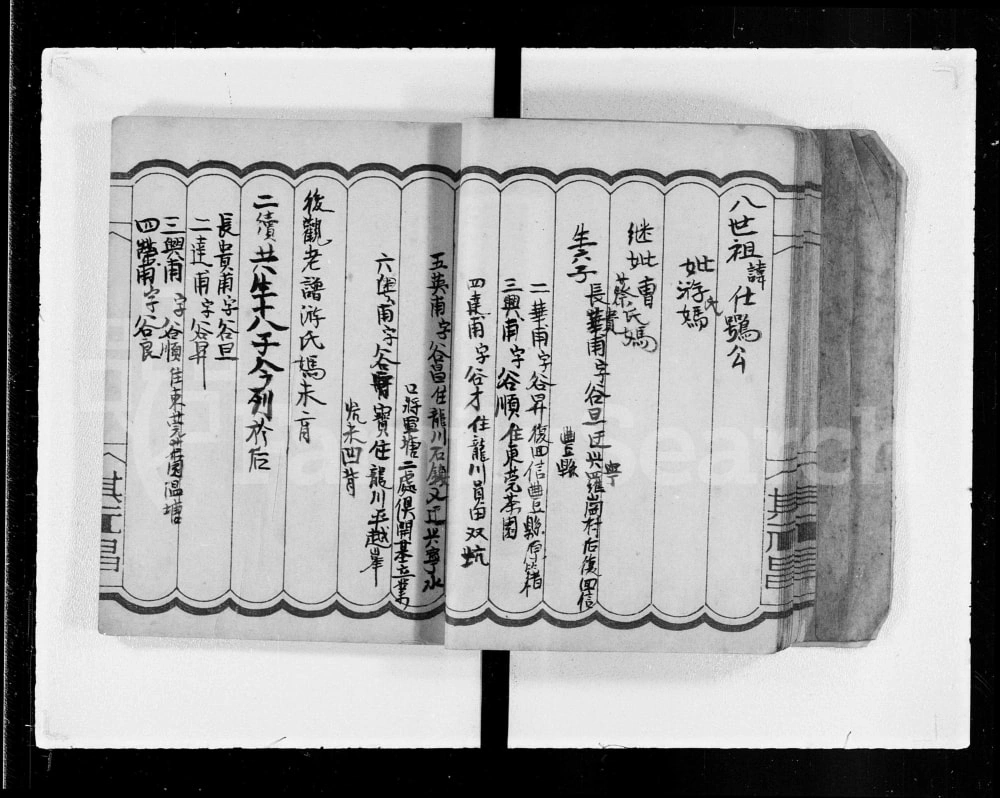 八世祖諱仕鶚公
妣游氏媽
继妣曹蔡氏媽
生六子
長貴甫字谷旦迁兴寧羅崗村后復回信
豊縣
二華甫字谷昇復回信豊縣
三興甫字谷順住東莞茶園
四達甫字谷才住龍川員田双坑
五英甫字谷昌住龍川石鎮又迁兴寧水
口將軍塘二處俱開基立業
六甫字谷寳住龍川平越峯
坑未四背
後觀老譜游氏媽未育
二續共生十八子今列於后
長貴甫字谷旦
二達甫字谷昇
三興甫字谷順住東莞茶園温塘
四甫字谷良
其昌
其昌